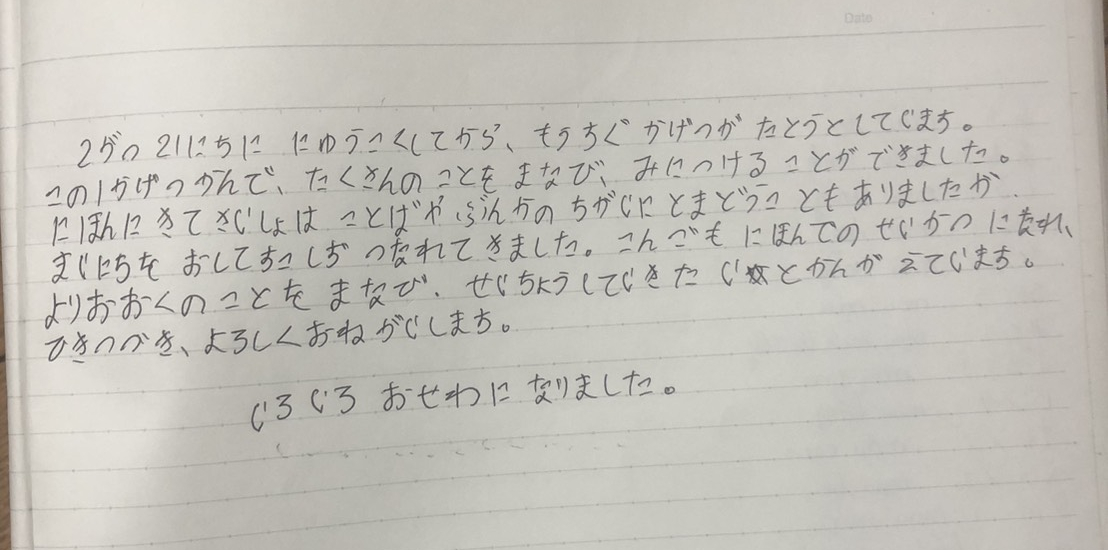 Date
2がつ 21にちに にゅうこくしてから、もうちぐ かげつが たとうとしていまち。
この1かげつかんで、たくさんのことを まなび、みにつけることができました。
にほんに きて さいしょは ことばや ぶんかの ちがいにとまどうこともありましたが
まいにちを おしてすこしづつなれてきました。こんごも にほんでの せいかつ になれ、
よりおおくのことを まなび、せいちょうしていきたいとかんがえていまち。
ひきつづき、よろしくおねがいしまち。
いろいろ おせわに なりました。